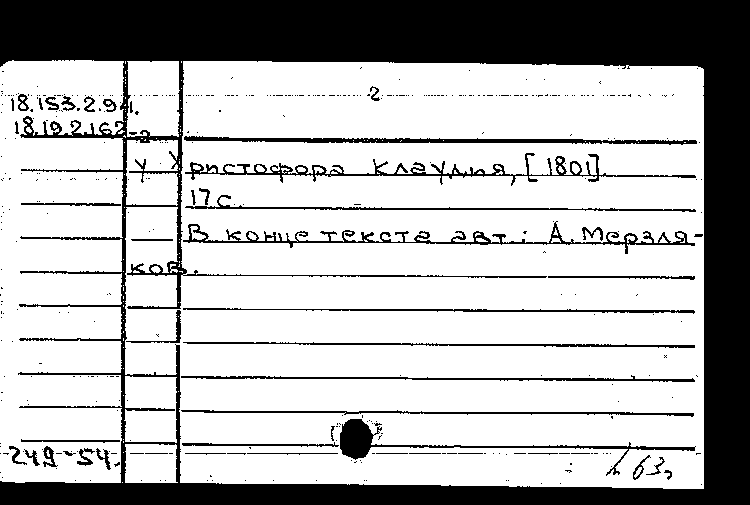 2
18.153.2.94.
18.19.2.162-2
у Христофора Клаудия, [1801].
17 с.
В конце текста авт.: А. Мерзля-
ков.
249-54.
63